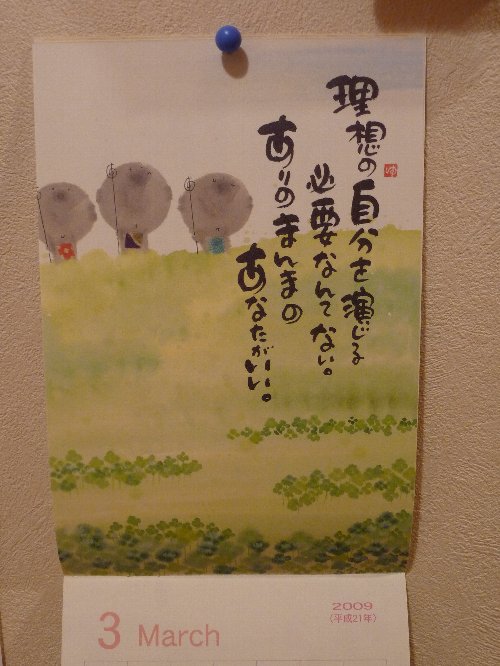 理想の自分を演じる
必要なんてない。
ありのまんまの
あなたがいい。
3 March
2009
(平成21年)